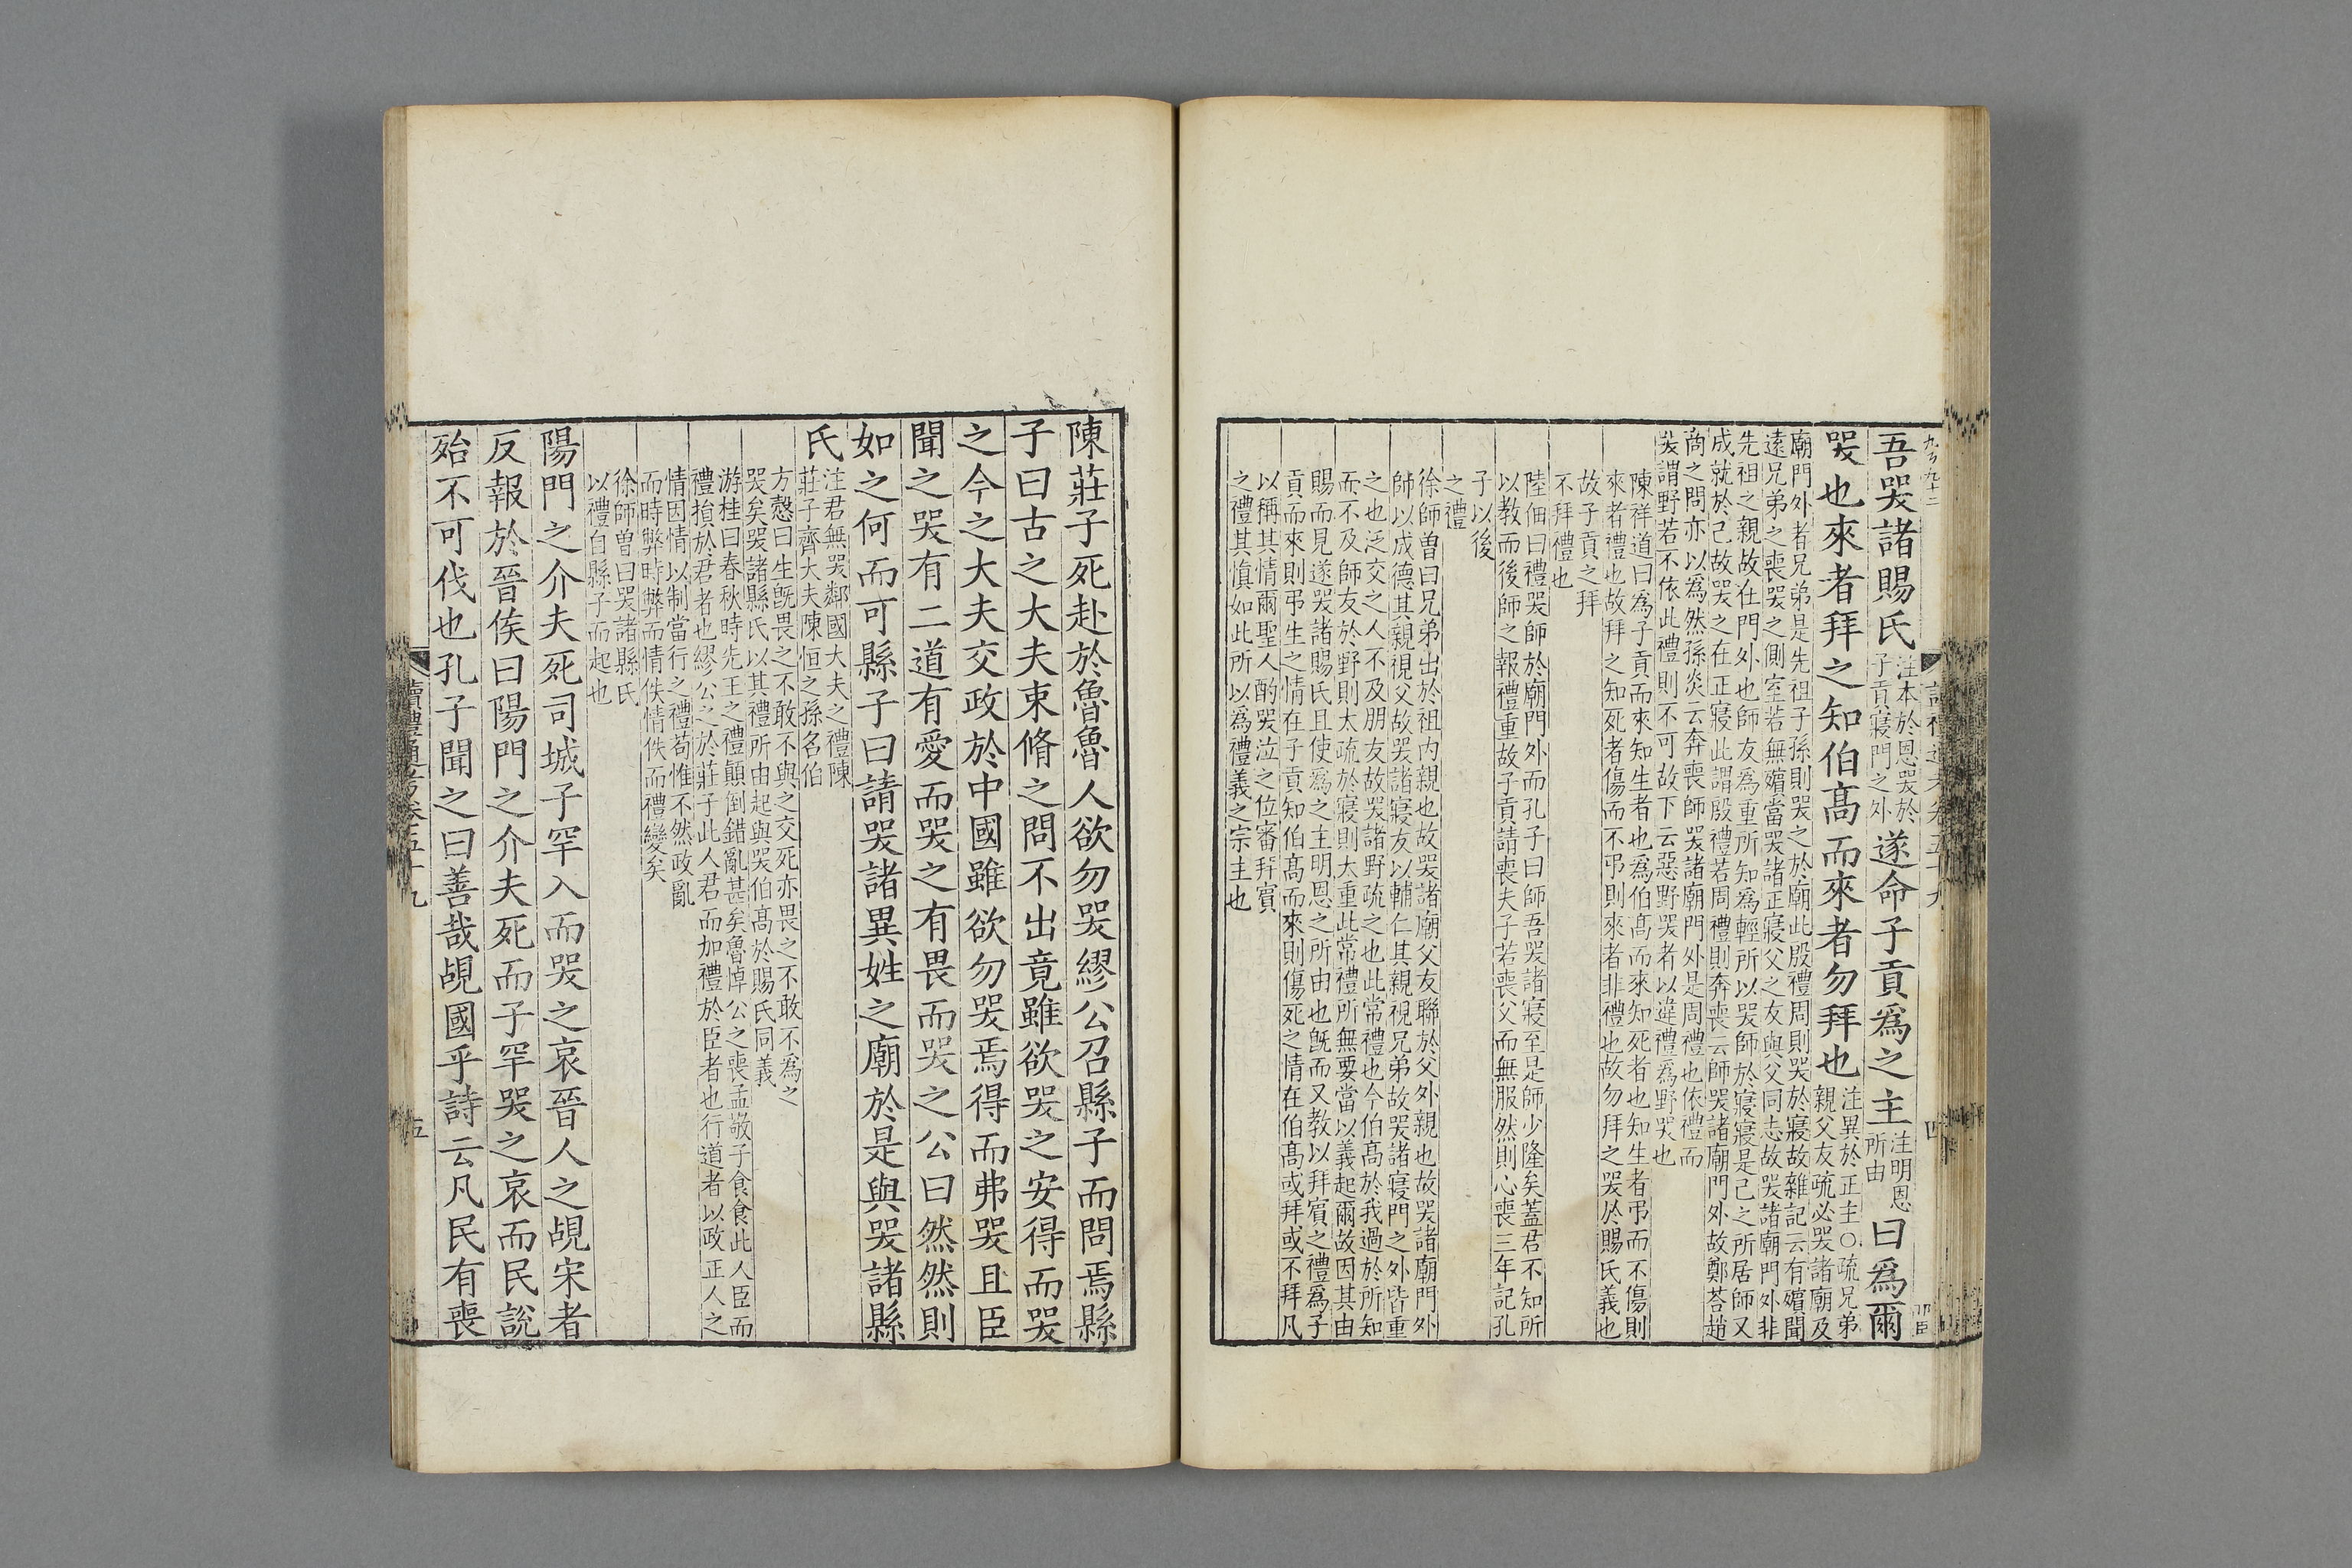 吾哭諸賜氏注本於恩哭於子貢寢門之外遂命子貢爲之主注明恩所由曰爲爾
哭也來者拜之知伯髙而來者勿拜也注異於正主○疏兄弟親父友疏必哭諸廟及
廟門外者兄弟是先祖子孫則哭之於廟此殷禮周則哭於寢故雜記云有殯聞
遠兄弟之喪哭之側室若無殯當哭諸正寢父之友與父同志故哭諸廟門外非
先祖之親故在門外也師友爲重所知爲輕所以哭師於寢寢是己之所居師又
成就於己故哭之在正寢此謂殷禮若周禮則奔喪云師哭諸廟門外故鄭荅趙
商之問亦以爲然孫炎云奔喪師哭諸廟門外是周禮也依禮而
哭謂野若不依此禮則不可故下云惡野哭者以違禮爲野哭也
陳祥道曰爲子貢而來知生者也爲伯髙而來知死者也知生者弔而不傷則
來者禮也故拜之知死者傷而不弔則來者非禮也故勿拜之哭於賜氏義也
故子貢之拜
不拜禮也
陸佃曰禮哭師於廟門外而孔子曰師吾哭諸寢至是師少隆矣蓋君不知所
以教而後師之報禮重故子貢請喪夫子若喪父而無服然則心喪三年記孔
子以後
之禮
徐師曽曰兄弟出於祖内親也故哭諸廟父友聯於父外親也故哭諸廟門外
師以成德其親視父故哭諸寢友以輔仁其親視兄弟故哭諸寢門之外皆重
之也泛交之人不及朋友故哭諸野疏之也此常禮也今伯髙於我過於所知
而不及師友於野則太疏於寢則太重此常禮所無要當以義起爾故因其由
賜而見遂哭諸賜氏且使爲之主明恩之所由也旣而又教以拜賓之禮爲子
貢而來則弔生之情在子貢知伯髙而來則傷死之情在伯髙或拜或不拜凡
以稱其情爾聖人酌哭泣之位審拜賓
之禮其愼如此所以爲禮義之宗主也
陳莊子死赴於魯魯人欲勿哭繆公召縣子而問焉縣
子曰古之大夫束脩之問不出竟雖欲哭之安得而哭
之今之大夫交政於中國雖欲勿哭焉得而弗哭且臣
聞之哭有二道有愛而哭之有畏而哭之公曰然然則
如之何而可縣子曰請哭諸異姓之廟於是與哭諸縣
氏注君無哭鄰國大夫之禮陳莊子齊大夫陳恒之孫名伯
方慤曰生旣畏之不敢不與之交死亦畏之不敢不爲之
哭矣哭諸縣氏以其禮所由起與哭伯髙於賜氏同義
游桂曰春秋時先王之禮顛倒錯亂甚矣魯悼公之喪孟敬子食食此人臣而
禮損於君者也繆公之於莊子此人君而加禮於臣者也行道者以政正人之
情因情以制當行之禮苟惟不然政亂
而時弊時弊而情佚情佚而禮變矣
徐師曽曰哭諸縣氏
以禮自縣子而起也
陽門之介夫死司城子罕入而哭之哀晉人之覘宋者
反報於晉侯曰陽門之介夫死而子罕哭之哀而民說
殆不可伐也孔子聞之曰善哉覘國乎詩云凡民有喪
讀禮通考卷五十九
五